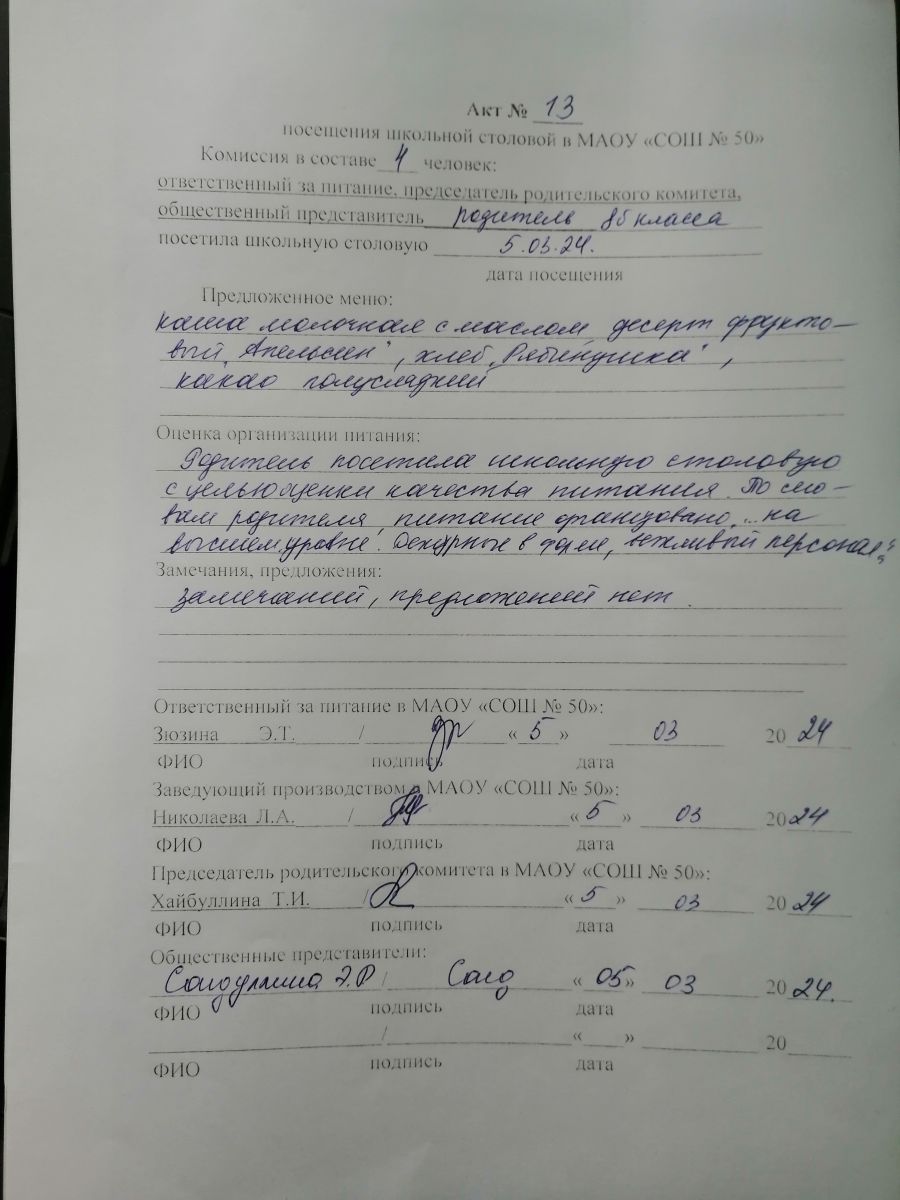 Акт № 13
посещения школьной столовой в МАОУ «СОШ № 50»
Комиссия в составе 4 человек:
ответственный за питание, председатель родительского комитета,
общественный представитель родитель 8б класса
посетила школьную столовую 5.03.24.
дата посещения
Предложенное меню:
каша молочная с маслом, десерт фрукто-
вый „Апельсин", хлеб „Рябинушка",
какао полусладкий
Оценка организации питания:
Родитель посетила школьную столовую
с целью оценки качества питания. По сло-
вам родителя, питание организовано „на
высшем уровне. Дежурные в форме, вежливый персонал."
Замечания, предложения:
замечаний, предложений нет.
Ответственный за питание в МАОУ «СОШ № 50»:
Зюзина Э.Т. / «5» 03 2024
ФИО подпись дата
Заведующий производством в МАОУ «СОШ № 50»:
Николаева Л.А. / «5» 03 2024
ФИО подпись дата
Председатель родительского комитета в МАОУ «СОШ № 50»:
Хайбуллина Т.И. / «5» 03 2024
ФИО подпись дата
Общественные представители:
Э.Р / «05» 03 2024.
ФИО подпись дата
/ « » 20
ФИО подпись дата